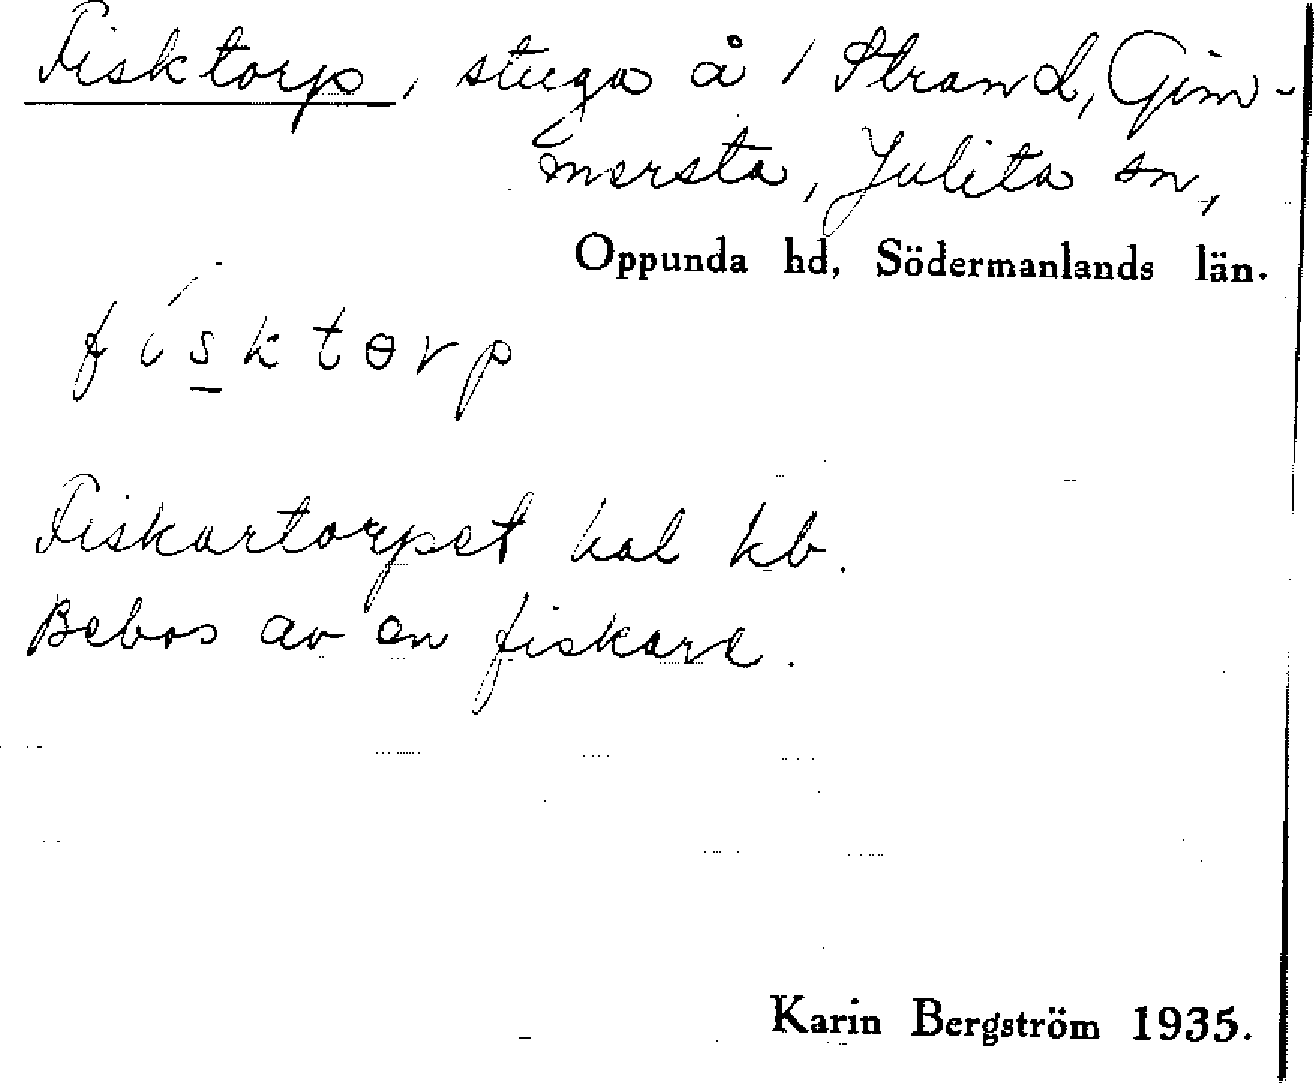 Fisktorp, stuga å 1 Strand, Gim-
mersta, Julita sn,
Oppunda hd, Södermanlands län.
físktɵrp
Fiskartorpet hal kb.
Bebos av en fiskare.
Karin Bergström 1935.